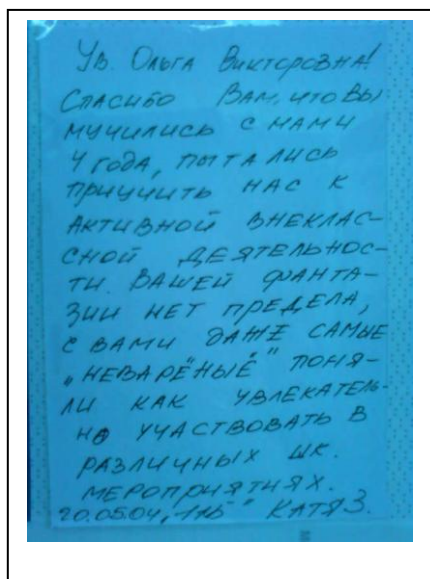 Ув. Ольга Викторовна!
Спасибо Вам, что Вы
мучились с нами
4 года, пытались
приучить нас к
активной внеклас-
сной деятельнос-
ти. Вашей фанта-
зии нет предела,
с вами даже самые
„неварёные" поня-
ли как увлекатель-
но участвовать в
различных шк.
мероприятиях.
20.05.04, 11„Б" Катя З.